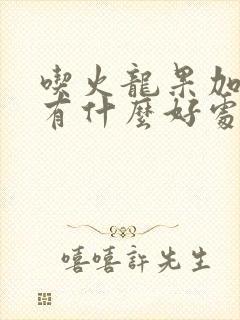 喫火龍果加
有什麼好處
嘻嘻許先生